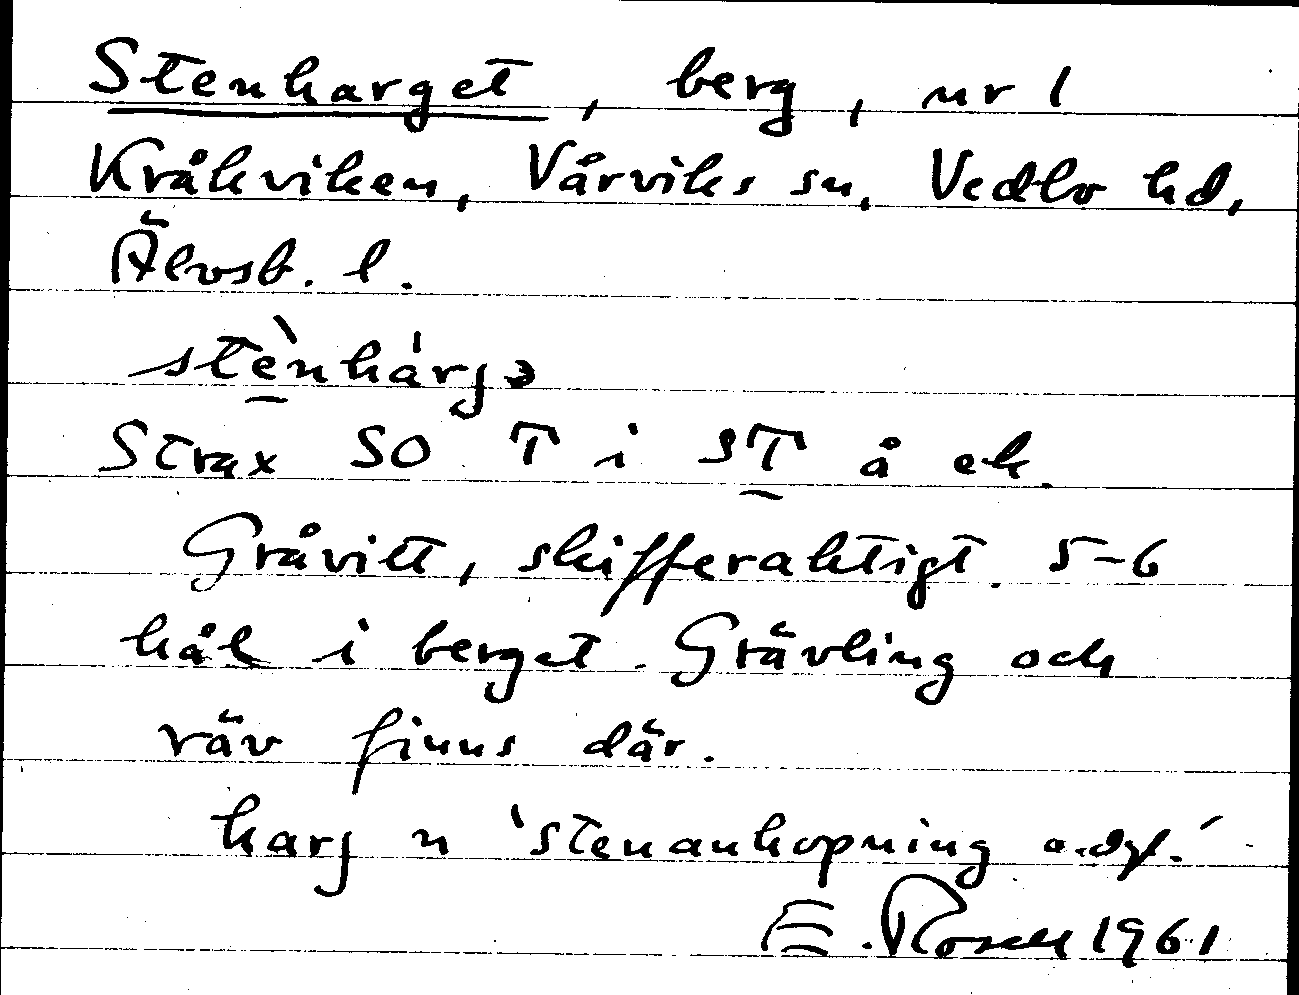 Stenharget, berg, nr 1
Kråkviken, Vårviks sn, Vedbo hd,
Älvsb. l.
stè̱nhárjə
Strax SO T i ST̰ å ek.
Gråvitt, skifferaktigt. 5-6
hål i berget. Grävling och
räv finns där.
harj n 'stenanhopning o.dyl.'
E. Rosell 1961